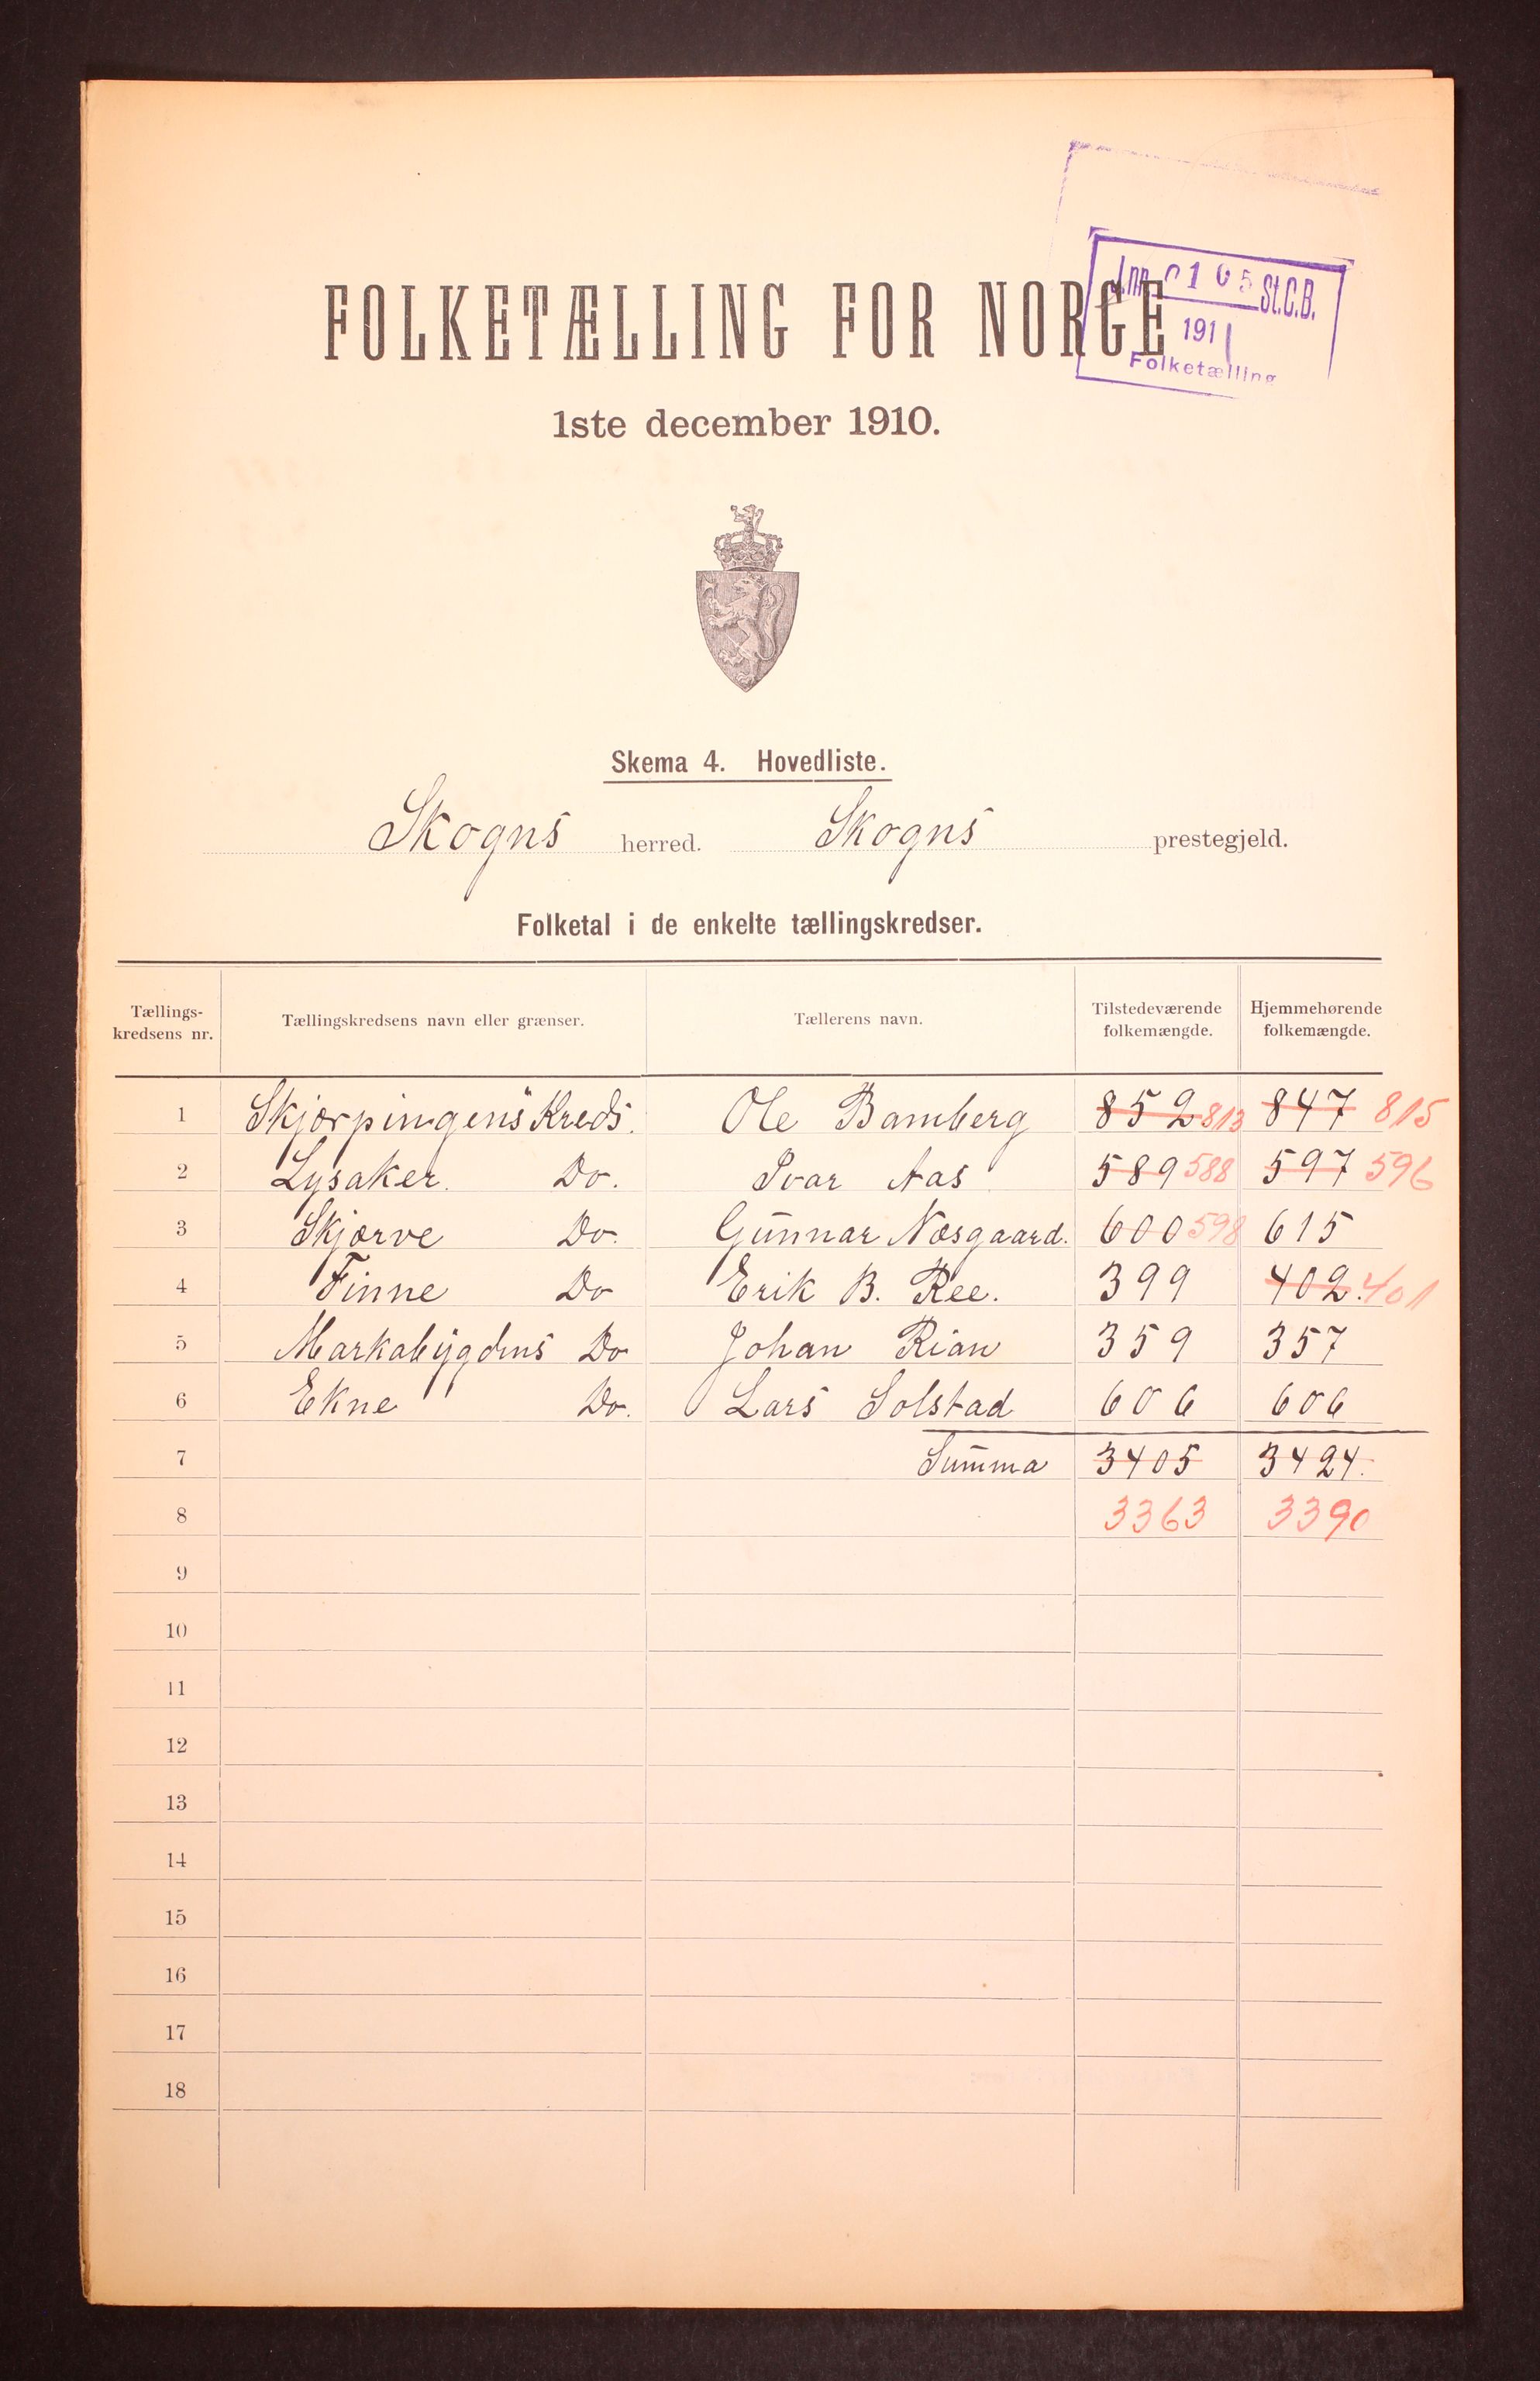 J.nr. 0105 St.C.B.
1911
Folketælling
FOLKETÆLLING FOR NORGE
1ste december 1910.
Skema 4. Hovedliste.
Skogns herred. Skogns prestegjeld.
Folketal i de enkelte tællingskredser.
Tællings-kredsens nr. Tællingskredsens navn eller grænser. Tællerens navn. Tilstedeværende folkemængde. Hjemmehørende folkemængde.
1 Skjørpingens Kreds. Ole Bamberg 852 813 847 815
2 Lysaker. Do. Ivar Aas 589 588 597 596
3 Skjørve Do. Gunnar Næsgaard. 600 598 615
4 Finne Do Erik B. Ree. 399 402. 401
5 Markabygdens Do Johan Rian 359 357
6 Ekne Do. Lars Solstad 606 606
7 Summa 3405 3424.
8 3363 3390
9
10
11
12
13
14
15
16
17
18